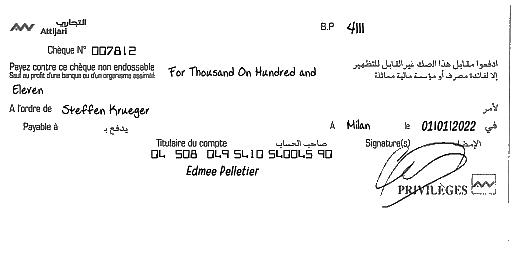 التجاري
Attijari
B.P 4111
Chèque N° 007812
Payez contre ce chèque non endossable
Sauf au profit d'une banque ou d'un organisme assimilé
For Thousand On Hundred and
ادفعوا مقابل هذا الصك غير القابل للتظهير
إلا لفائدة مصرف أو مؤسسة مالية مماثلة
Eleven
A l'ordre de Steffen Krueger
لأمر
Payable à يدفع بـ
A Milan le 01/01/2022 في
Titulaire du compte صاحب الحساب
Signature(s) الإمضاء
04 508 049 5410 540045 90
Edmee Pelletier
PRIVILÈGES